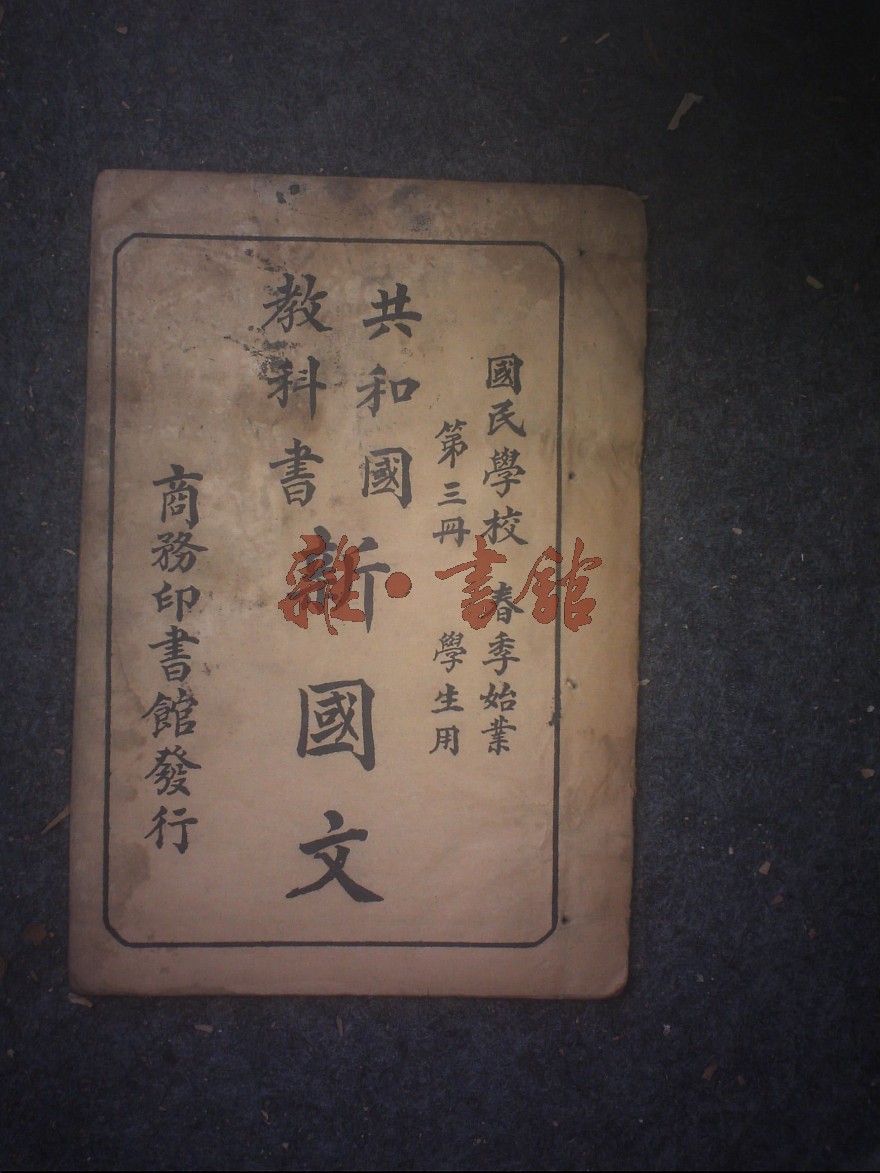 國民學校 春季始業
第三冊 學生用
共和國
教科書
新國文
商務印書館發行
雜·書館